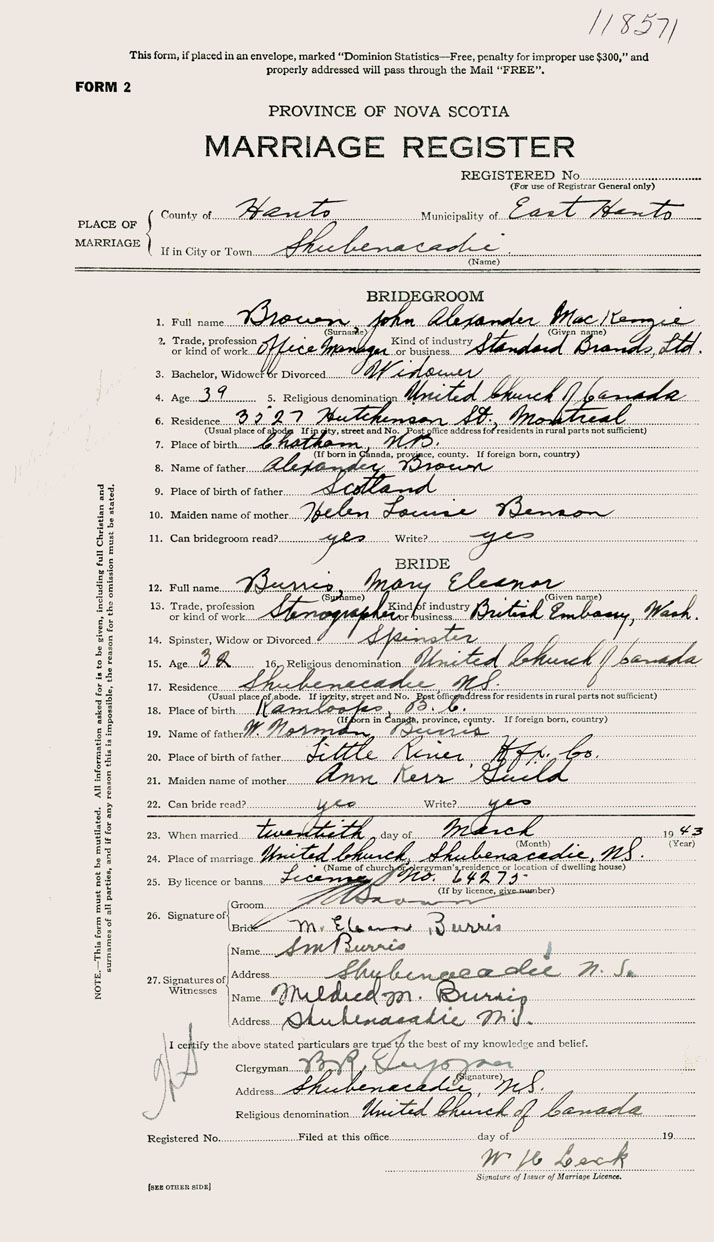 118571
This form, if placed in an envelope, marked "Dominion Statistics—Free, penalty for improper use $300," and
properly addressed will pass through the Mail "FREE".
FORM 2
PROVINCE OF NOVA SCOTIA
MARRIAGE REGISTER
REGISTERED No.
(For use of Registrar General only)
PLACE OF MARRIAGE
County of Hants Municipality of East Hants
If in City or Town Shubenacadie
(Name)
BRIDEGROOM
1. Full name Brown, John Alexander MacKenzie
(Surname) (Given name)
2. Trade, profession or kind of work Office Manager Kind of industry or business Standard Brands, Ltd.
3. Bachelor, Widower or Divorced Widower
4. Age 39 5. Religious denomination United Church of Canada
6. Residence 3527 Hutchinson St., Montreal
(Usual place of abode. If in city, street and No. Post office address for residents in rural parts not sufficient)
7. Place of birth Chatham, N.B.
(If born in Canada, province, county. If foreign born, country)
8. Name of father Alexander Brown
9. Place of birth of father Scotland
10. Maiden name of mother Helen Louise Benson
11. Can bridegroom read? yes Write? yes
BRIDE
12. Full name Burris, Mary Eleanor
(Surname) (Given name)
13. Trade, profession or kind of work Stenographer Kind of industry or business British Embassy, Wash.
14. Spinster, Widow or Divorced Spinster
15. Age 32 16. Religious denomination United Church of Canada
17. Residence Shubenacadie N.S.
(Usual place of abode. If in city, street and No. Post office address for residents in rural parts not sufficient)
18. Place of birth Kamloops, B.C.
(If born in Canada, province, county. If foreign born, country)
19. Name of father W. Norman Burris
20. Place of birth of father Little River, Hfx. Co.
21. Maiden name of mother Ann Kerr Guild
22. Can bride read? yes Write? yes
23. When married twentieth day of March 1943
(Month) (Year)
24. Place of marriage United Church, Shubenacadie, N.S.
(Name of church or clergyman's residence or location of dwelling house)
25. By licence or banns License No. 64275
(If by licence, give number)
26. Signature of
Groom Brown
Bride M. Eleanor Burris
27. Signatures of Witnesses
Name SM Burris
Address Shubenacadie N.S.
Name Mildred M. Burris
Address Shubenacadie N.S.
I certify the above stated particulars are true to the best of my knowledge and belief.
Clergyman
(Signature)
Address Shubenacadie, N.S.
Religious denomination United Church of Canada
Registered No. Filed at this office day of 19
W H Leck
Signature of Issuer of Marriage Licence.
[SEE OTHER SIDE]
NOTE.—This form must not be mutilated. All information asked for is to be given, including full Christian and
surnames of all parties, and if for any reason this is impossible, the reason for the omission must be stated.